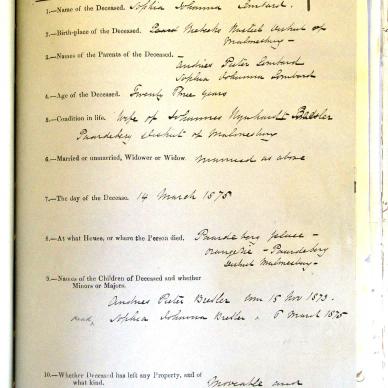 1.—Name of the Deceased. Sophia Johanna Lombard.
2.—Birth-place of the Deceased. District of
Malmesbury —
3.—Names of the Parents of the Deceased.
Andries Pieter Lombard
Sophia Johanna Lombard
4.—Age of the Deceased. Twenty Three years
5.—Condition in life. Wife of Johannes Bresler
Paardeberg District of Malmesbury
6.—Married or unmarried, Widower or Widow. married as above
7.—The day of the Decease. 14 March 1875
8.—At what House, or where the Person died. Paardeberg place —
Paardeberg
District Malmesbury —
9.—Names of the Children of Deceased and whether
Minors or Majors.
Andries Pieter Bresler 15 Nov 1873.
dead, Sophia Johanna Bresler 6 March 1875
10.—Whether Deceased has left any Property, and of
what kind. Moveable and